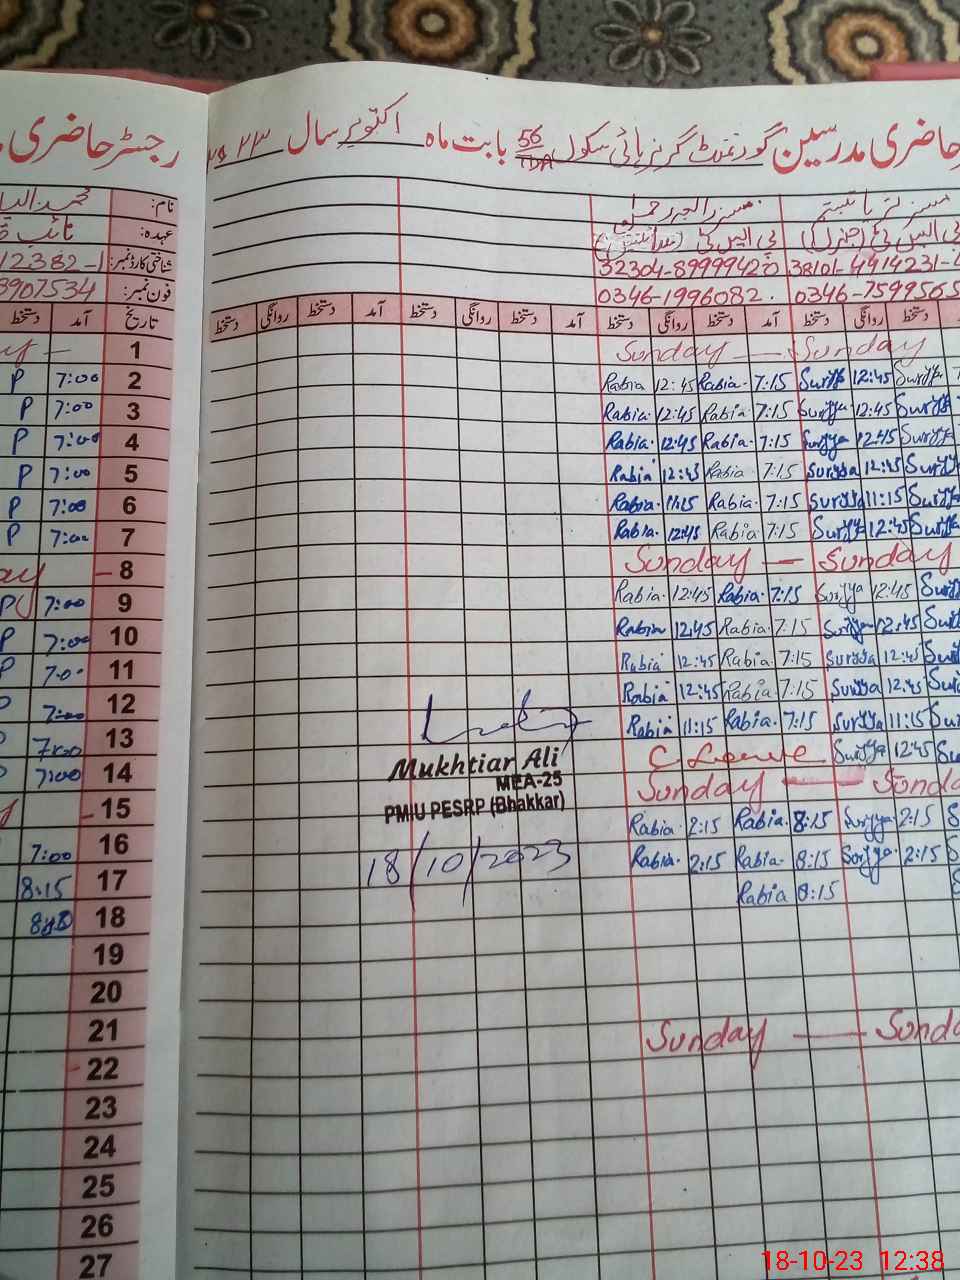 حاضری مدرسین گورنمنٹ گرلز ہائی سکول 56 TDA بابت ماہ اکتوبر سال ۲۰۲۳
رجسٹر حاضری
نام:
عہدہ: نائب
شناختی کارڈ نمبر: 12382-1
فون نمبر: 8907534
مسز رابعہ
بی ایس ٹی
32304-8999942
38101-4914231-4
0346-1996082
0346-7599565
دستخط روانگی دستخط آمد دستخط روانگی دستخط آمد دستخط روانگی دستخط آمد دستخط روانگی دستخط
تاریخ آمد دستخط
1 Sunday — Sunday
P 7:00 2 Rabia 12:45 Rabia 7:15 Suryya 12:45 Suryya
P 7:00 3 Rabia 12:45 Rabia 7:15 Suryya 12:45 Suryya
P 7:00 4 Rabia 12:45 Rabia 7:15 Suryya 12:45 Suryya
P 7:00 5 Rabia 12:45 Rabia 7:15 Suryya 12:45 Suryya
P 7:00 6 Rabia 11:15 Rabia 7:15 Suryya 11:15 Suryya
P 7:00 7 Rabia 12:45 Rabia 7:15 Suryya 12:45 Suryya
8 Sunday — Sunday
P 7:00 9 Rabia 12:45 Rabia 7:15 Suryya 12:45
P 7:00 10 Rabia 12:45 Rabia 7:15 Suryya 12:45
P 7:00 11 Rabia 12:45 Rabia 7:15 Suryya 12:45
7:00 12 Rabia 12:45 Rabia 7:15 Suryya 12:45
7:00 13 Rabia 11:15 Rabia 7:15 Suryya 11:15
7:00 14 C Leave Suryya 12:45
15 Sunday — Sunday
7:00 16 Rabia 2:15 Rabia 8:15 Suryya 2:15
8:15 17 Rabia 2:15 Rabia 8:15 Suryya 2:15
18 Rabia 8:15
Mukhtiar Ali
MEA-25
PMIU PESRP (Bhakkar)
18/10/2023
19
20
21
Sunday — Sunday
22
23
24
25
26
27
18-10-23 12:38